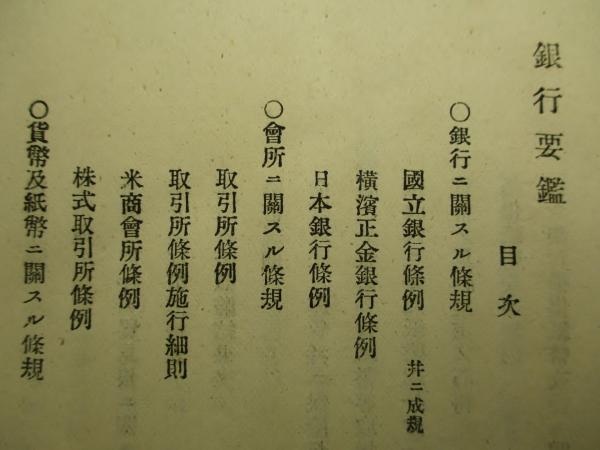 銀行要鑑
目次
〇銀行ニ關スル條規
國立銀行條例 幷ニ成規
橫濱正金銀行條例
日本銀行條例
〇會所ニ關スル條規
取引所條例
取引所條例施行細則
米商會所條例
株式取引所條例
〇貨幣及紙幣ニ關スル條規